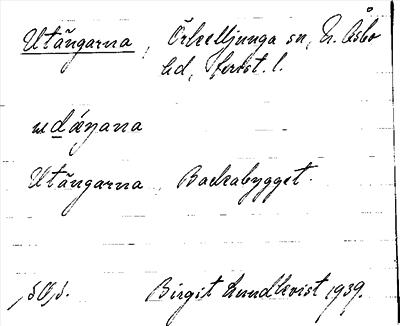 Utängarna, Örkelljunga sn, N. Åsbo
hd, ferst. l.
Utängarna, Backabygget.
Birgit Lundkvist 1939.